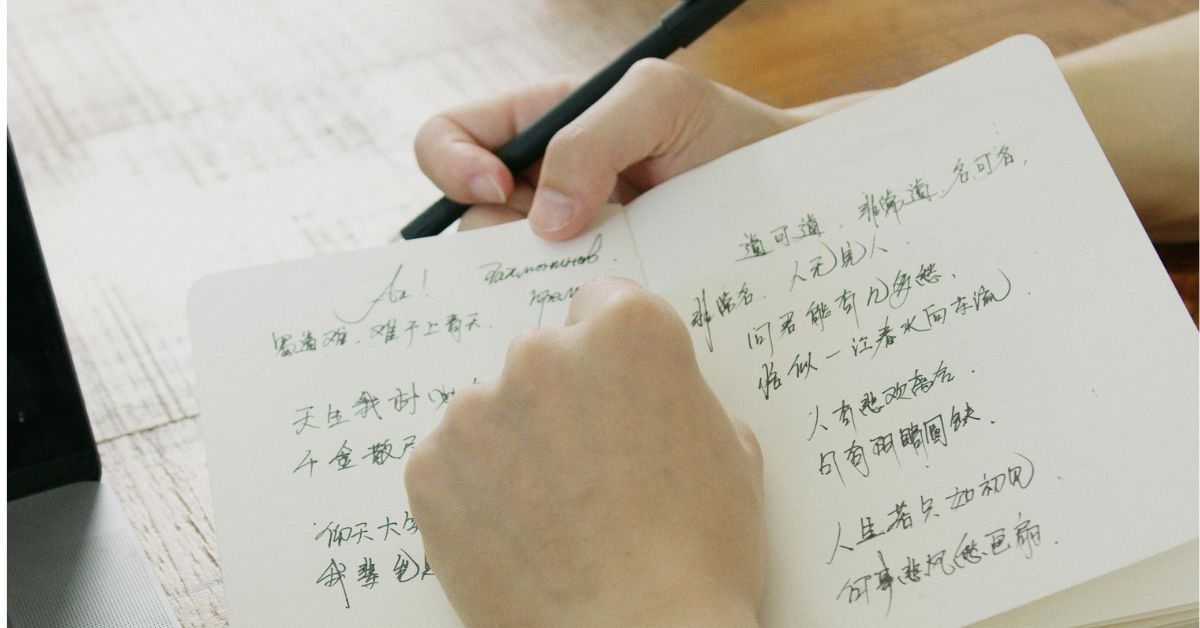 蜀道难,难于上青天.
天生我材必
千金散尽
仰天大
我辈岂
道可道,非常道,名可名,
非常名. 人无完人.
问君能有几多愁,
恰似一江春水向东流
人有悲欢离合.
月有阴晴圆缺.
人生若只如初见
何事悲风愁画扇.